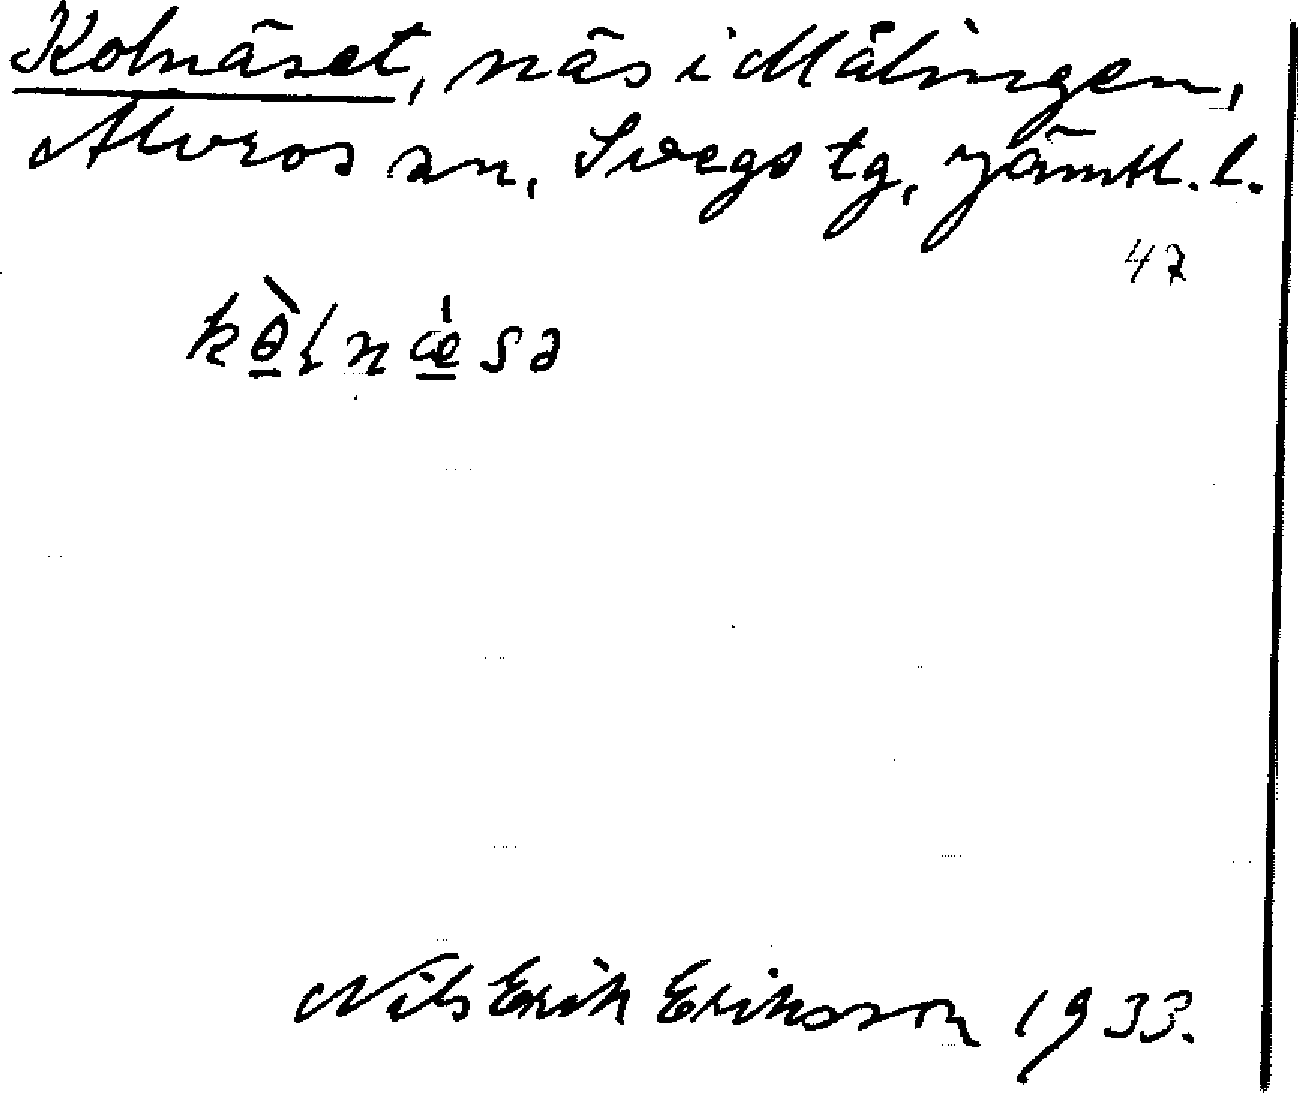 Kolnäset, näs i Målingen,
Alvros sn, Svegs tg, Jämtl. l.
47
kɵ̀lnǽsə
Nils Erik Eriksson 1933.